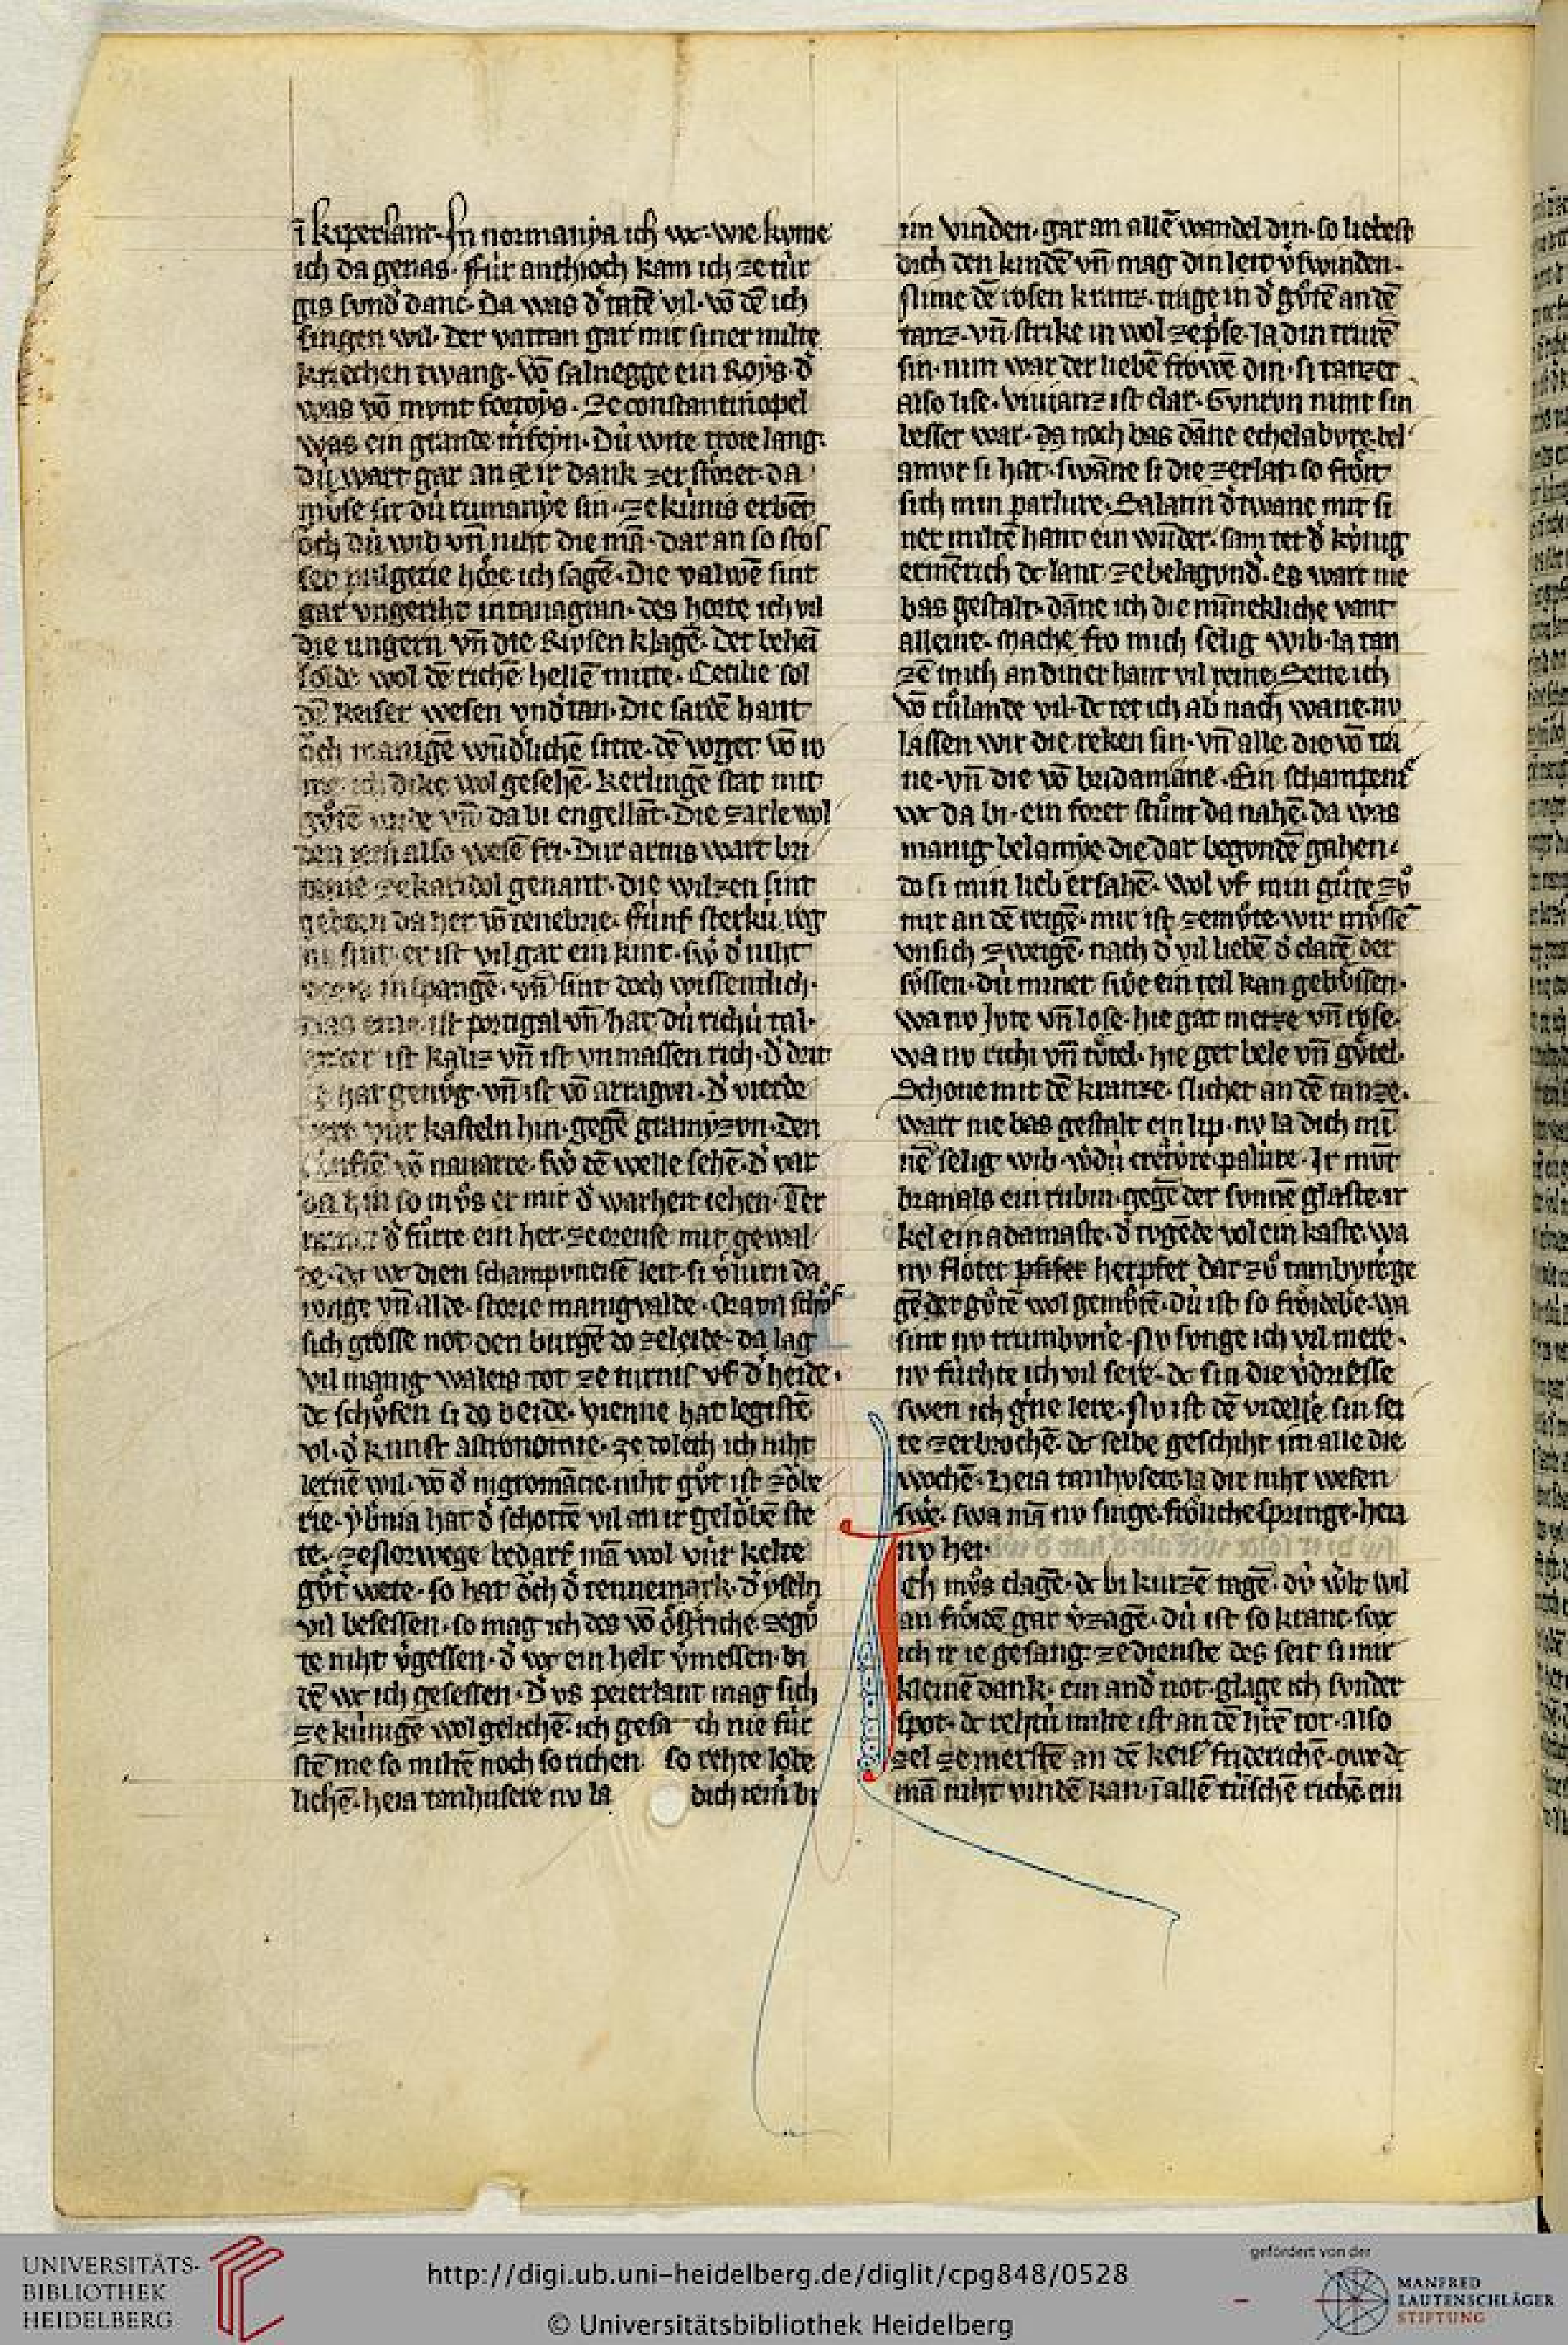 ī kipersant. In normanya ich wc. wie kvme
ich da genas. Für anthioch kam ich ze tür
gis svnd' danc. da was d' tatē vil. vō dē ich
singen wil. der vattan gar mit siner milte
kriechen twang. Vō salnegge ein Roys. d'
was vō mvnt fortoys. Ze constantinopel
was ein grande mrfeyn. Dü wite trote lang.
dü wart gar ane ir dank zerstöret. da
mvse sit dü rumanye sin. ze kumis erbent
och dü wib vn̄ niht die mā. dar an so stos
set pulgerie höre ich sagē. Die valwē sint
gar vngeriht in tanagran. des horte ich vil
die ungern vn̄ die Rivsen klagē. Der behei
solde wol dē richē hellē mitte. Cecilie sol
dē keiser wesen vnd' tan. Die sardē hant
öch manigē wūd'lichē sitte. dē voget vō ro
me ich dike wol gesehē. kerlingē stat mit
gůtē vride vn̄ da bi engellāt. Die zarle wol
den iem also wesē fri. Dur artus wart bri
tanie ze karidol genant. die wilzen sint
geborn da her vō tenebrie. fünf sterkü. rig
nü sint. er ist vil gar ein kint. sw' d' niht
weis in spangē. vn̄ sint doch wissentlich.
Das eine ist portigal vn̄ hat dü richü tal.
ander ist kaliz vn̄ ist vnmassen rich. d' drit
te hat genůg. vn̄ ist vō arragvn. d' vierde
vert vür kasteln hin. gegē gramyzvn. den
fünftē vō nauarre. sw' dē welle sehē. d' var
da hin so můs er mir d' warheit iehen. Ter
ramer d' fürte ein her. ze orense mit gewal
te. da wc dien schampvneisē leit. si v'lurn da
ivnge vn̄ alde. storie manigvalde. Oravn schůf
sich grosse not den burgē do ze leide. da lag
vil manig waleis tot ze turnis vf d' heide.
dc schůfen si do beide. vienne hat legistē
vl. d' kunst astronomie. ze tolech ich niht
lernē wil. vō d' nigromācie. niht gůt ist zobe
rie. yb'nia hat d' schottē vil an ir gelöbē ste
te. ze norwege bedarf mā wol vür kelte
gůt wete. so hat öch d' tennemark. d' yseln
vil besessen. so mag ich des vō öst'riche ze gů
te niht v'gessen. d' wc ein helt v'messen. bi
dē wc ich gesessen. D' vs peierlant mag sich
ze künigē wol gelichē. ich gesa ch nie für
stē me so miltē noch so richen. so rehte lobe
lichē. heia tanhusere nv la dich iem bi
im vinden. gar an allē wandel din. so liebest
dich den kindē vn̄ mag din leit v'swinden.
slime dē rosen kranz. trage in d' gůtē an dē
tanz. vn̄ strike in wol ze prise. la din trurē
sin. nim war der liebē frowē din. si tanzet
also lise. Viuianz ist clar. Gyntvn nimt sin
besser war. da noch bas dāne echelabvre. bel
amvr si hat. swāne si die zerlat. so fröit
sich min parlure. Salatin d' twanc mit si
ner miltē hant ein wūder. sam tet d' kvnig
ermērich dc lant ze belagvnd'. es wart nie
bas gestalt. dāne ich die minekliche vant
alleine. Mache fro mich selig wib. la tan
zē mich an diner hant vil reine. Seite ich
vō růlande vil. dc tet ich ab nach wane. nv
lassen wir die reken sin. vn̄ alle die vō tra
ne. vn̄ die vō bridamane. Ein schampeni'
wc da bi. ein foret stůnt da nahē. da was
manig belamye. die dar begondē gahen.
do si min lieb ersahē. Wol vf min gůte zů
mir an dē reigē. mir ist ze můte. wir můssē
vnsich zweigē. nach d' vil liebē d' clarē der
sůssen. dü minet swe ein teil kan gebůssen.
wa nv Jvte vn̄ lose. hie gat metze vn̄ rvse.
wa nv richi vn̄ tůtel. hie get bele vn̄ gůtel.
Schone mit dē kranze. slichet an dē tanze.
wart nie bas gestalt ein lip. nv la dich mī
nē selig wib. w'dü cretvre palure. Ir mvt
bran als ein rubin. gegē der svnnē glaste. ir
kel ein adamaste. d' tvgēde vol ein kaste. wa
nv flöter pfifer herpfer dar zů tambvre. ge
gē der gůtē wol gemůtē. dü ist so fröidebe. wa
sint nv trumbvne. Nv svnge ich vil mere.
nv fürchte ich vil sere. dc sin die v'driesse
swen ich g'ne lere. Nv ist dē videlle. sin sei
te zerbrochē. dc selbe geschiht im alle die
wochē. Heia tanhvsere. la dir niht wesen
swe. swa mā nv singe. fröliche springe. heia
nv hei.
Ich můs clagē. dc bi kurzē tagē. dü w'lt wil
an fröidē gar v'zagē. dü ist so kranc. swc
ich ir ie gesang. ze dienste des seit si mir
kleinē dank. ein and' not. glage ich svnder
spot. dc rehtü milte ist an dē h'rē tot. also
zel ze merstē an dē keis' friderichē. owe dc
mā niht vindē kan. ī allē tüsche richē. ein
UNIVERSITÄTS-
BIBLIOTHEK
HEIDELBERG
http://digi.ub.uni-heidelberg.de/diglit/cpg848/0528
© Universitätsbibliothek Heidelberg
gefördert von der
MANFRED
LAUTENSCHLÄGER
STIFTUNG